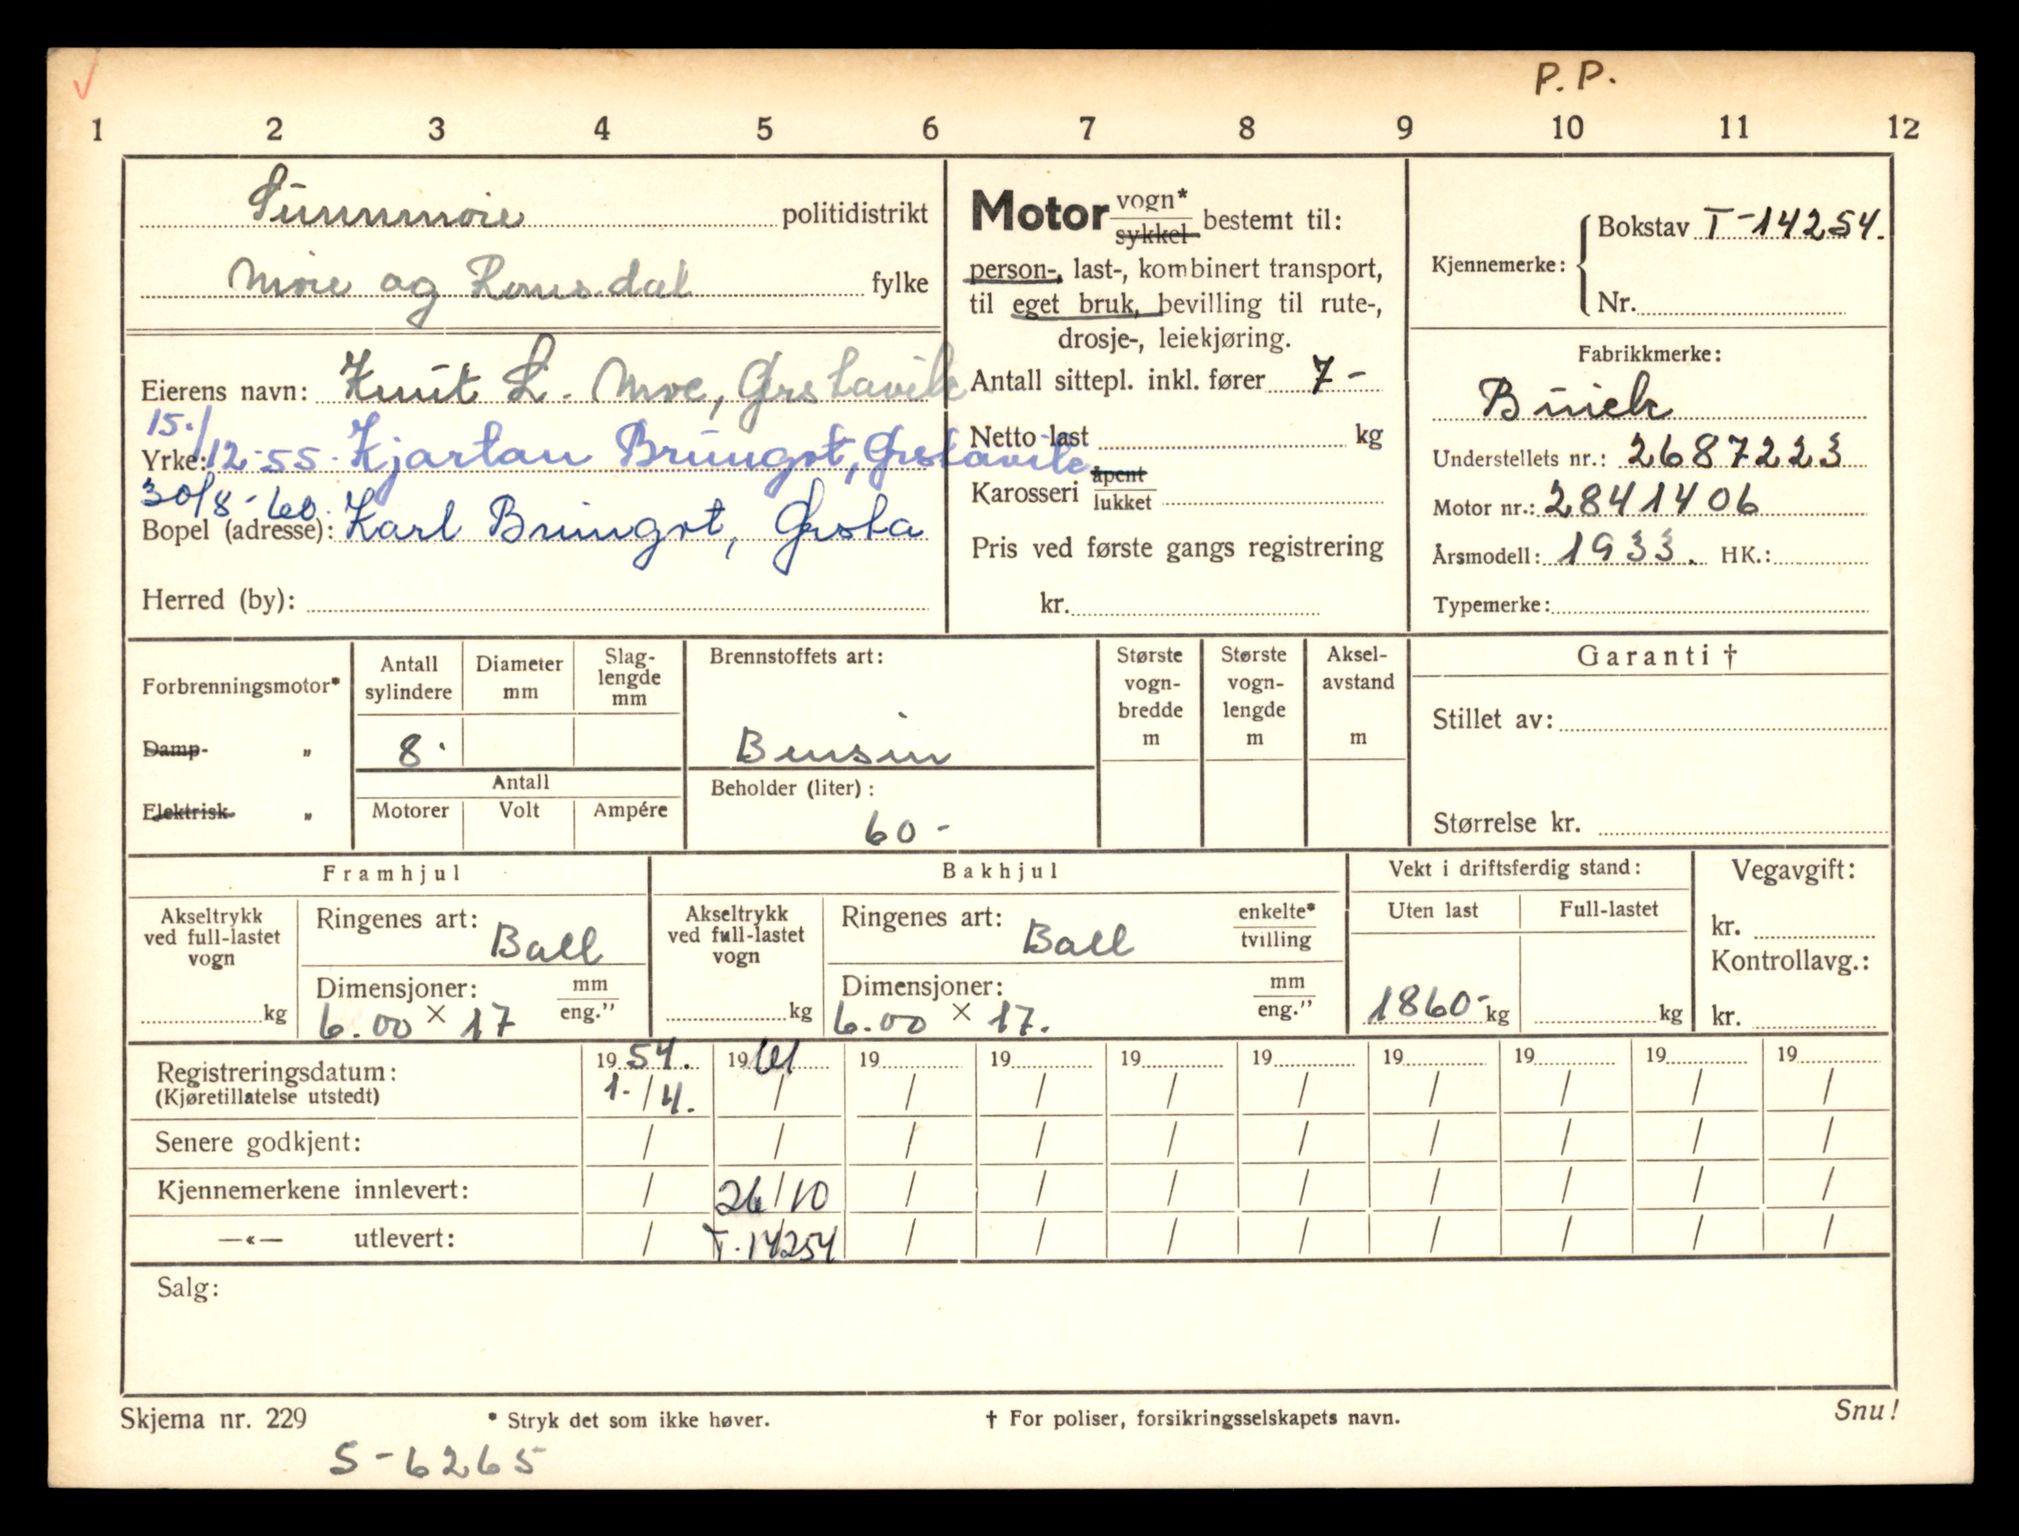 P. P.
1 2 3 4 5 6 7 8 9 10 11 12
Sunnmøre politidistrikt
Møre og Romsdal fylke
Eierens navn: Knut L. Moe, Ørstavik
15./12-55. Kjartan Brungot, Ørstavik
Yrke:
30/8-60. Karl Brungot, Ørsta
Bopel (adresse):
Herred (by):
Motor vogn*
sykkel bestemt til:
person-, last-, kombinert transport,
til eget bruk, bevilling til rute-,
drosje-, leiekjøring.
Antall sittepl. inkl. fører 7-
Netto last kg
Karosseri åpent
lukket
Pris ved første gangs registrering
kr.
Kjennemerke: Bokstav T-14254.
Nr.
Fabrikkmerke:
Buick
Understellets nr.: 2687223
Motor nr.: 2841406
Årsmodell: 1933. HK.:
Typemerke:
Forbrenningsmotor*
Damp- „
Elektrisk- „
Antall sylindere
Diameter mm
Slag-
lengde
mm
8.
Antall
Motorer Volt Ampére
Brennstoffets art:
Bensin
Beholder (liter):
60-
Største
vogn-
bredde
m
Største
vogn-
lengde
m
Aksel-
avstand
m
Garanti †
Stillet av:
Størrelse kr.
Framhjul
Akseltrykk
ved full-lastet
vogn
kg
Ringenes art: Ball
Dimensjoner: mm
6.00 × 17 eng.”
Bakhjul
Akseltrykk
ved full-lastet
vogn
kg
Ringenes art: Ball enkelte*
tvilling
Dimensjoner: mm
6.00 × 17. eng.”
Vekt i driftsferdig stand:
Uten last Full-lastet
1860- kg kg
Vegavgift:
kr.
Kontrollavg.:
kr.
Registreringsdatum: 19 54. 19 61 19 19 19 19 19 19 19 19
(Kjøretillatelse utstedt) 1./4. / / / / / / / / /
Senere godkjent: / / / / / / / / / /
Kjennemerkene innlevert: / 26/10 / / / / / / / /
—«— utlevert: / T.14254 / / / / / / / /
Salg:
Skjema nr. 229 * Stryk det som ikke høver. † For poliser, forsikringsselskapets navn. Snu!
S-6265